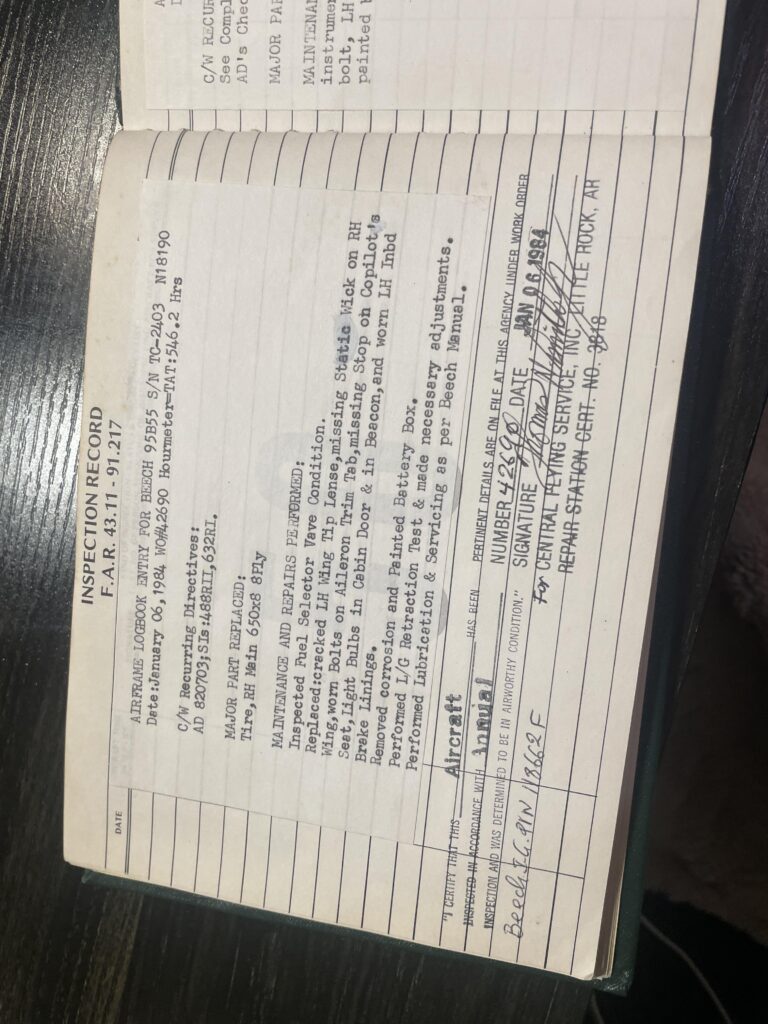 C/W RECUR
See Compl
AD's Chec
MAJOR PAR
MAINTENAN
instrumen
bolt, LH
painted b
INSPECTION RECORD
F.A.R. 43.11 - 91.217
DATE
AIRFRAME LOGBOOK ENTRY FOR BEECH 95B55 S/N TC-2403 N18190
Date:January 06,1984 WO#42690 Hourmeter=TAT:546.2 Hrs
C/W Recurring Directives:
AD 820703;SIs:488RII,632RI.
MAJOR PART REPLACED:
Tire,RH Main 650x8 8Fly
MAINTENANCE AND REPAIRS PERFORMED:
Inspected Fuel Selector Vave Condition.
Replaced:cracked LH Wing Tip Lense,missing Static Wick on RH
Wing,worn Bolts on Aileron Trim Tab,missing Stop on Copilot's
Seat,Light Bulbs in Cabin Door & in Beacon,and worn LH Inbd
Brake Linings.
Removed corrosion and Painted Battery Box.
Performed L/G Retraction Test & made necessary adjustments.
Performed Lubrication & Servicing as per Beech Manual.
"I CERTIFY THAT THIS Aircraft HAS BEEN
INSPECTED IN ACCORDANCE WITH Annual
INSPECTION AND WAS DETERMINED TO BE IN AIRWORTHY CONDITION."
PERTINENT DETAILS ARE ON FILE AT THIS AGENCY UNDER WORK ORDER
NUMBER 42690 DATE JAN 06 1984
SIGNATURE
For CENTRAL FLYING SERVICE, INC. LITTLE ROCK, AR
REPAIR STATION CERT. NO. 3818
Beech I.G. P/N